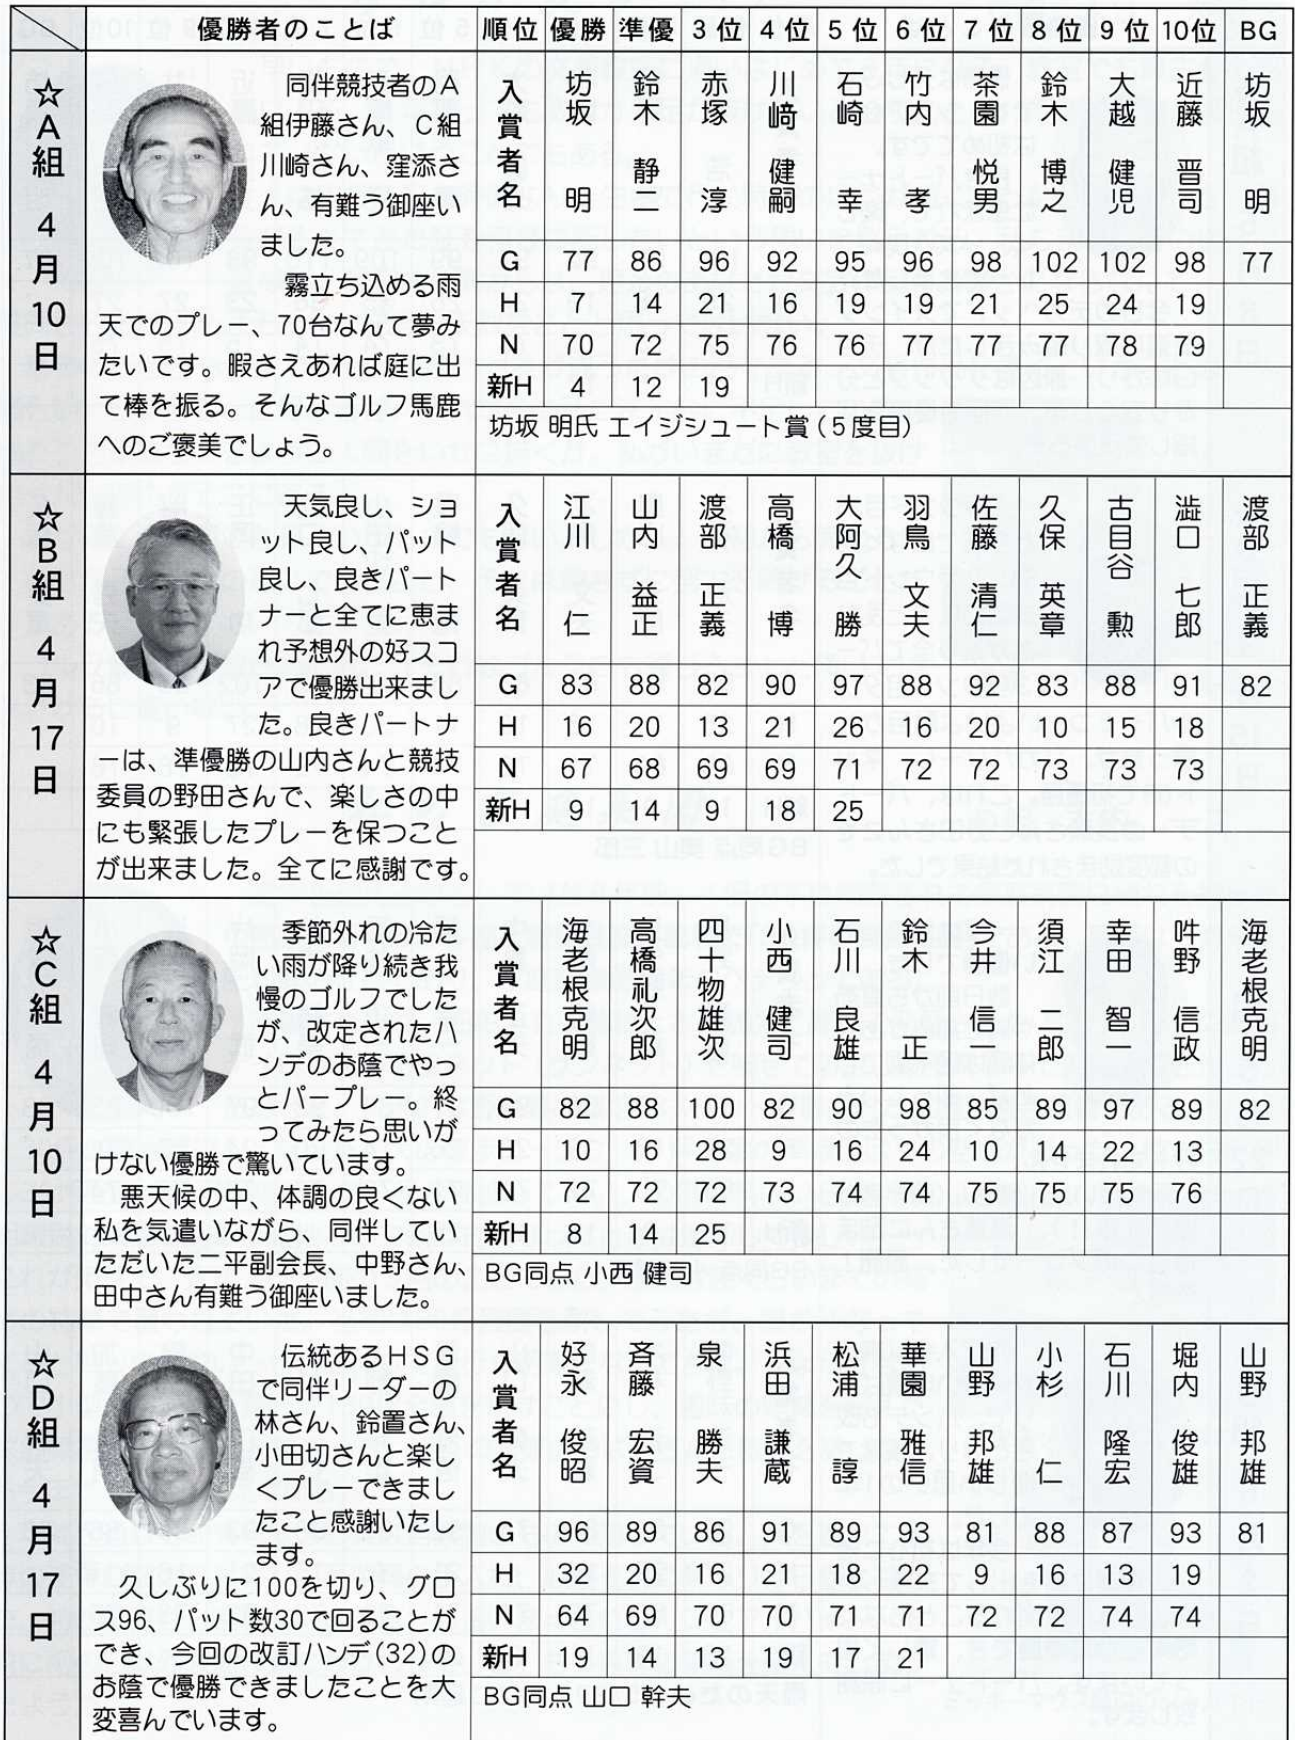 優勝者のことば 順位 優勝 準優 3位 4位 5位 6位 7位 8位 9位 10位 BG
☆A組 4月10日
同伴競技者のA
組伊藤さん、C組
川崎さん、窪添さ
ん、有難う御座い
ました。
霧立ち込める雨
天でのプレー、70台なんて夢み
たいです。暇さえあれば庭に出
て棒を振る。そんなゴルフ馬鹿
へのご褒美でしょう。
入賞者名 坊坂 明 鈴木 静二 赤塚 淳 川﨑 健嗣 石崎 幸 竹内 孝 茶園 悦男 鈴木 博之 大越 健児 近藤 晋司 坊坂 明
G 77 86 96 92 95 96 98 102 102 98 77
H 7 14 21 16 19 19 21 25 24 19
N 70 72 75 76 76 77 77 77 78 79
新H 4 12 19
坊坂 明氏 エイジシュート賞(5度目)
☆B組 4月17日
天気良し、ショ
ット良し、パット
良し、良きパート
ナーと全てに恵ま
れ予想外の好スコ
アで優勝出来まし
た。良きパートナ
ーは、準優勝の山内さんと競技
委員の野田さんで、楽しさの中
にも緊張したプレーを保つこと
が出来ました。全てに感謝です。
入賞者名 江川 仁 山内 益正 渡部 正義 高橋 博 大阿久 勝 羽鳥 文夫 佐藤 清仁 久保 英章 古目谷 勲 澁口 七郎 渡部 正義
G 83 88 82 90 97 88 92 83 88 91 82
H 16 20 13 21 26 16 20 10 15 18
N 67 68 69 69 71 72 72 73 73 73
新H 9 14 9 18 25
☆C組 4月10日
季節外れの冷た
い雨が降り続き我
慢のゴルフでした
が、改定されたハ
ンデのお蔭でやっ
とパープレー。終
ってみたら思いが
けない優勝で驚いています。
悪天候の中、体調の良くない
私を気遣いながら、同伴してい
ただいた二平副会長、中野さん、
田中さん有難う御座いました。
入賞者名 海老根克明 高橋礼次郎 四十物雄次 小西 健司 石川 良雄 鈴木 正 今井 信一 須江 二郎 幸田 智一 吽野 信政 海老根克明
G 82 88 100 82 90 98 85 89 97 89 82
H 10 16 28 9 16 24 10 14 22 13
N 72 72 72 73 74 74 75 75 75 76
新H 8 14 25
BG同点 小西 健司
☆D組 4月17日
伝統あるHSG
で同伴リーダーの
林さん、鈴置さん、
小田切さんと楽し
くプレーできまし
たこと感謝いたし
ます。
久しぶりに100を切り、グロ
ス96、パット数30で回ることが
でき、今回の改訂ハンデ(32)の
お陰で優勝できましたことを大
変喜んでいます。
入賞者名 好永 俊昭 斉藤 宏資 泉 勝夫 浜田 謙蔵 松浦 諄 華園 雅信 山野 邦雄 小杉 仁 石川 隆宏 堀内 俊雄 山野 邦雄
G 96 89 86 91 89 93 81 88 87 93 81
H 32 20 16 21 18 22 9 16 13 19
N 64 69 70 70 71 71 72 72 74 74
新H 19 14 13 19 17 21
BG同点 山口 幹夫